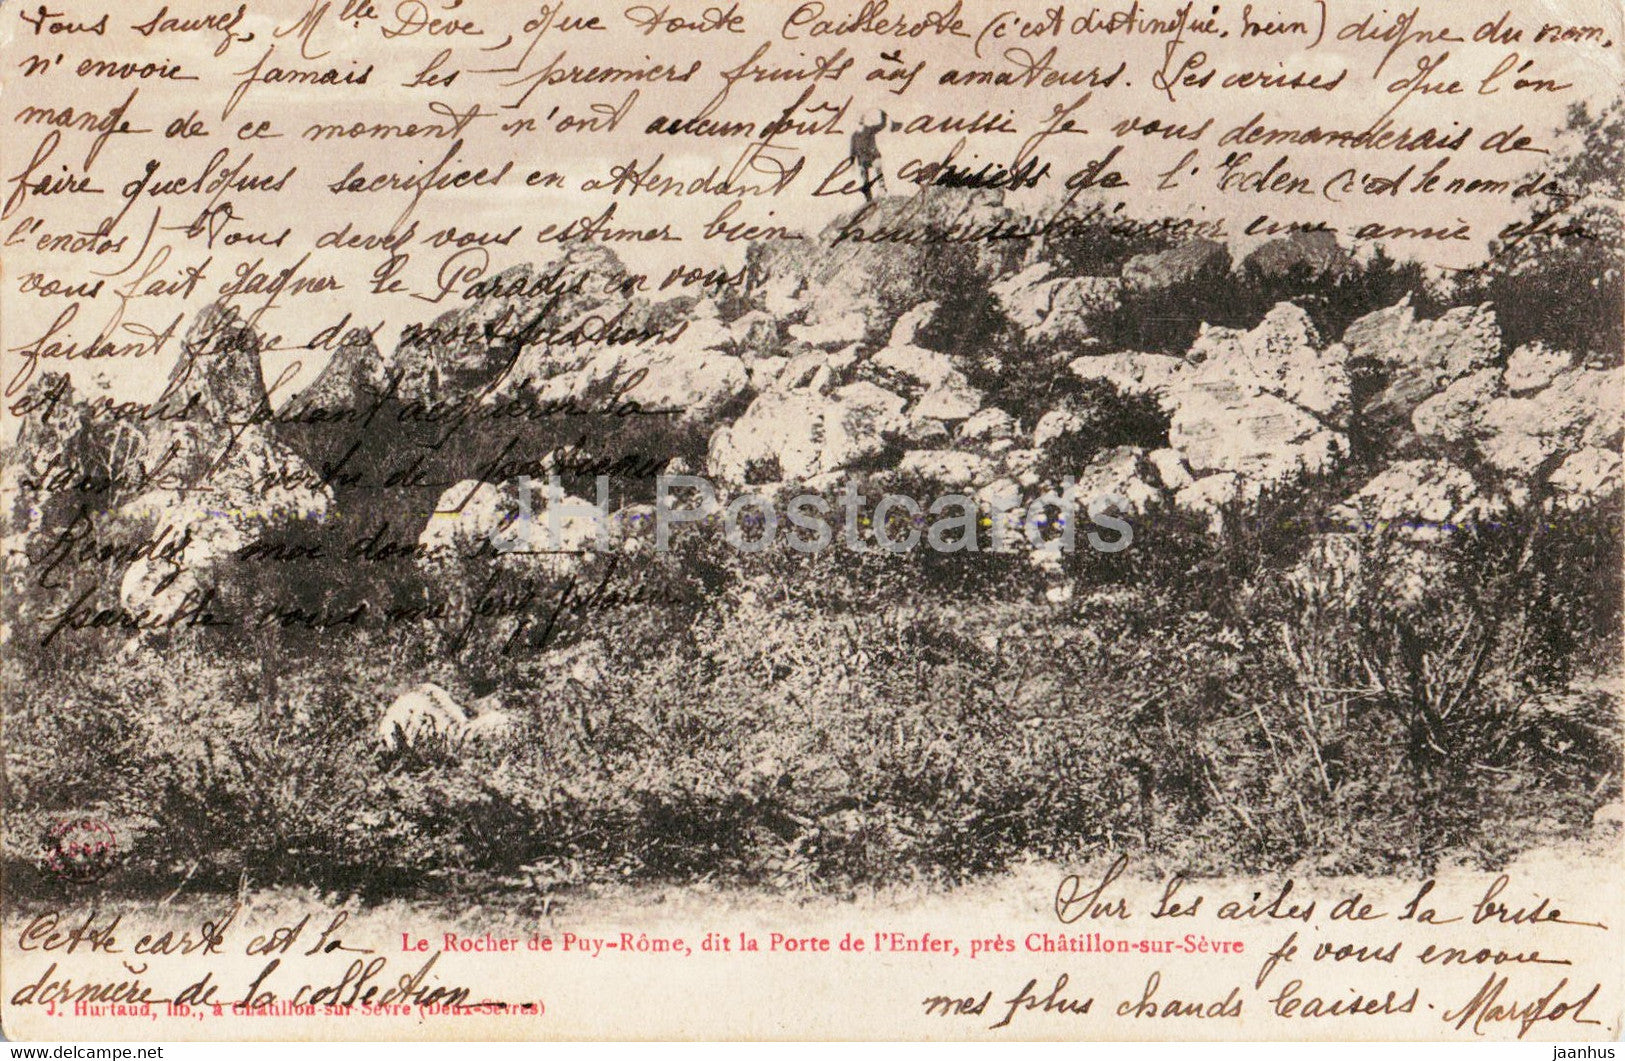 Vous saurez, Mlle Dève, que toute Caillerote (c'est distingué, hein) digne du nom,
n'envoie jamais les premiers fruits aux amateurs. Les cerises que l'on
mange de ce moment n'ont aucun goût aussi je vous demanderais de
faire quelques sacrifices en attendant les de l'Eden (c'est le nom de
l'enclos) Vous devez vous estimer bien heureuse d'avoir une amie qui
vous fait gagner le Paradis en vous
faisant faire des mortifications
et vous faisant acquérir la
sainte vertu de patience
Rendez moi donc la
pareille vous me ferez plaisir
JH Postcards
Cette carte est la
dernière de la collection
Le Rocher de Puy-Rôme, dit la Porte de l'Enfer, près Châtillon-sur-Sèvre
J. Hurtaud, lib., à Châtillon-sur-Sèvre (Deux-Sèvres)
Sur les ailes de la brise
je vous envoie
mes plus chauds baisers. Margot.
jaanhus
jaanhus.delcampe.net